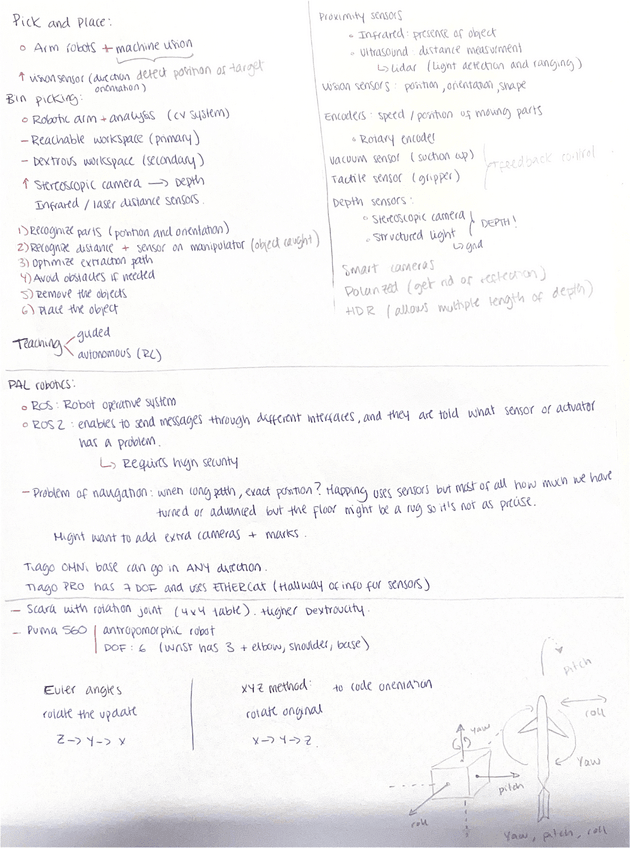 Pick and Place:
o Arm robots + machine vision
↑ vision sensor (direction detect position of target
orientation)
Bin picking:
o Robotic arm + analysis (CV system)
- Reachable workspace (primary)
- Dextrous workspace (secondary)
↑ Stereoscopic camera → Depth
Infrared / laser distance sensors.
1) Recognize parts (position and orientation)
2) Recognize distance + sensor on manipulator (object caught)
3) Optimize extraction path
4) Avoid obstacles if needed
5) Remove the objects
6) Place the object
Teaching < guided
autonomous (RL)
Proximity sensors
o Infrared: presence of object
o Ultrasound: distance measurment
↳ Lidar (light detection and ranging)
Vision sensors: position, orientation, shape
Encoders: speed / position of moving parts
o Rotary encoder
Vacuum sensor (suction cup)
Tactile sensor (gripper)
feedback control
Depth sensors:
o Stereoscopic camera
o Structured light
DEPTH!
↳ grid
Smart cameras
Polarized (get rid of reflection)
HDR (allows multiple length of depth)
PAL robotics:
o ROS: Robot operative system
o ROS 2: enables to send messages through different interfaces, and they are told what sensor or actuator
has a problem.
↳ Requires high security
- Problem of navigation: when long path, exact position? Mapping uses sensors but most of all how much we have
turned or advanced but the floor might be a rug so it's not as precise.
Might want to add extra cameras + marks.
Tiago OMNI base can go in ANY direction.
Tiago PRO has 7 DOF and uses ETHERCat (Hallway of info for sensors)
- Scara with rotation joint (4x4 table). Higher Dextrocity.
- Puma 560 | antropomorphic robot
DOF: 6 (wrist has 3 + elbow, shoulder, base)
Euler angles
rotate the update
Z → Y → X
XYZ method: to code orientation
rotate original
X → Y → Z.
yaw
pitch
roll
pitch
roll
Yaw
Yaw, pitch, roll